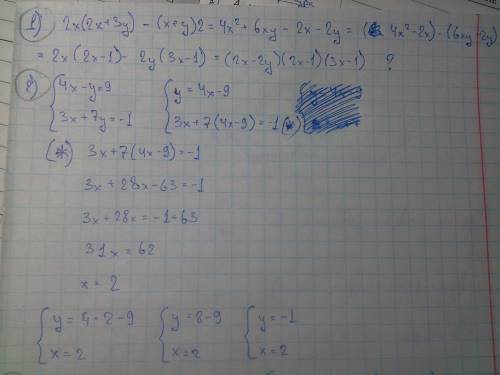 1) 2x(2x+3y) - (x+y)2 = 4x² + 6xy - 2x - 2y = (4x²-2x) - (6xy-2y)
= 2x(2x-1) - 2y(3x-1) = (2x-2y)(2x-1)(3x-1) ?
2) { 4x-y=9 { y=4x-9
3x+7y=-1 3x+7(4x-9)=-1 (*)
(*) 3x+7(4x-9)=-1
3x+28x-63=-1
3x+28x=-1+63
31x=62
x=2
{ y=4·2-9 { y=8-9 { y=-1
x=2 x=2 x=2